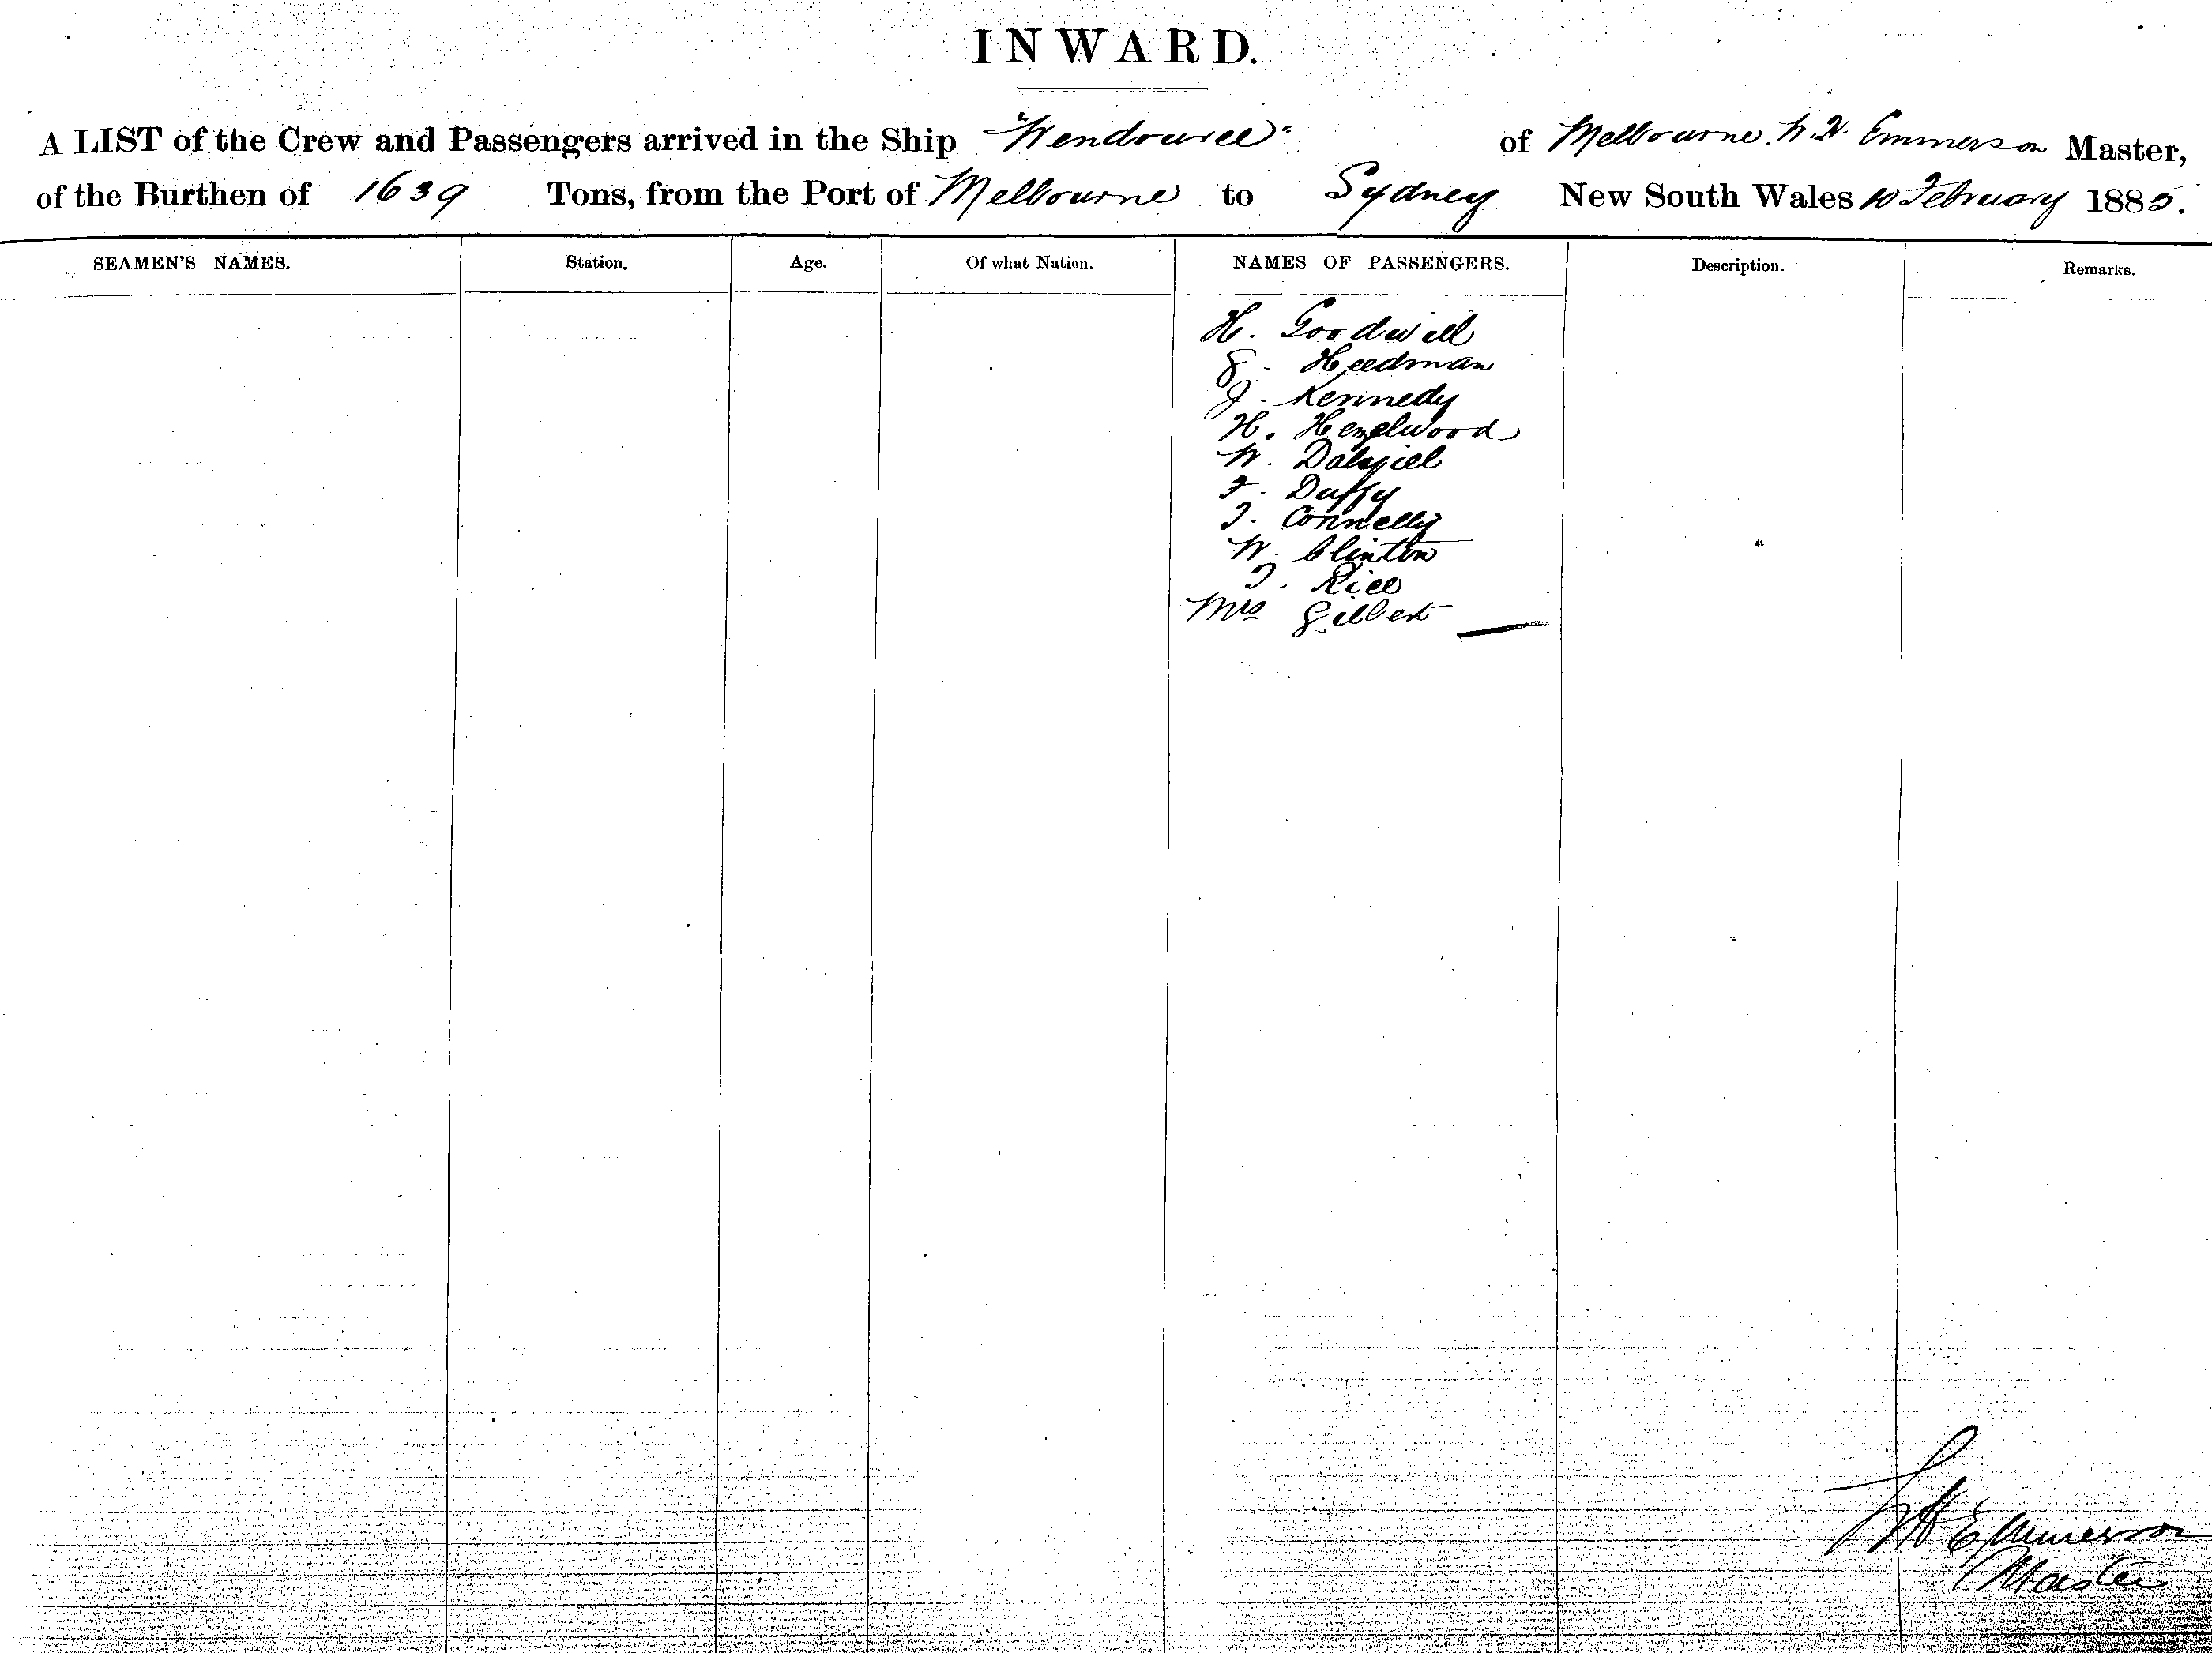 INWARD.
A LIST of the Crew and Passengers arrived in the Ship "Wendouree" of Melbourne. W. H. Emmerson Master,
of the Burthen of 1639 Tons, from the Port of Melbourne to Sydney New South Wales 10 February 1885.
SEAMEN'S NAMES. Station. Age. Of what Nation. NAMES OF PASSENGERS. Description. Remarks.
H. Goodwill
Heedman
J. Kennedy
H.
W. Dalziel
F. Duffy
J. Connelly
W. Clinton
J. Rice
Mrs Gilbert
Emmerson
Master